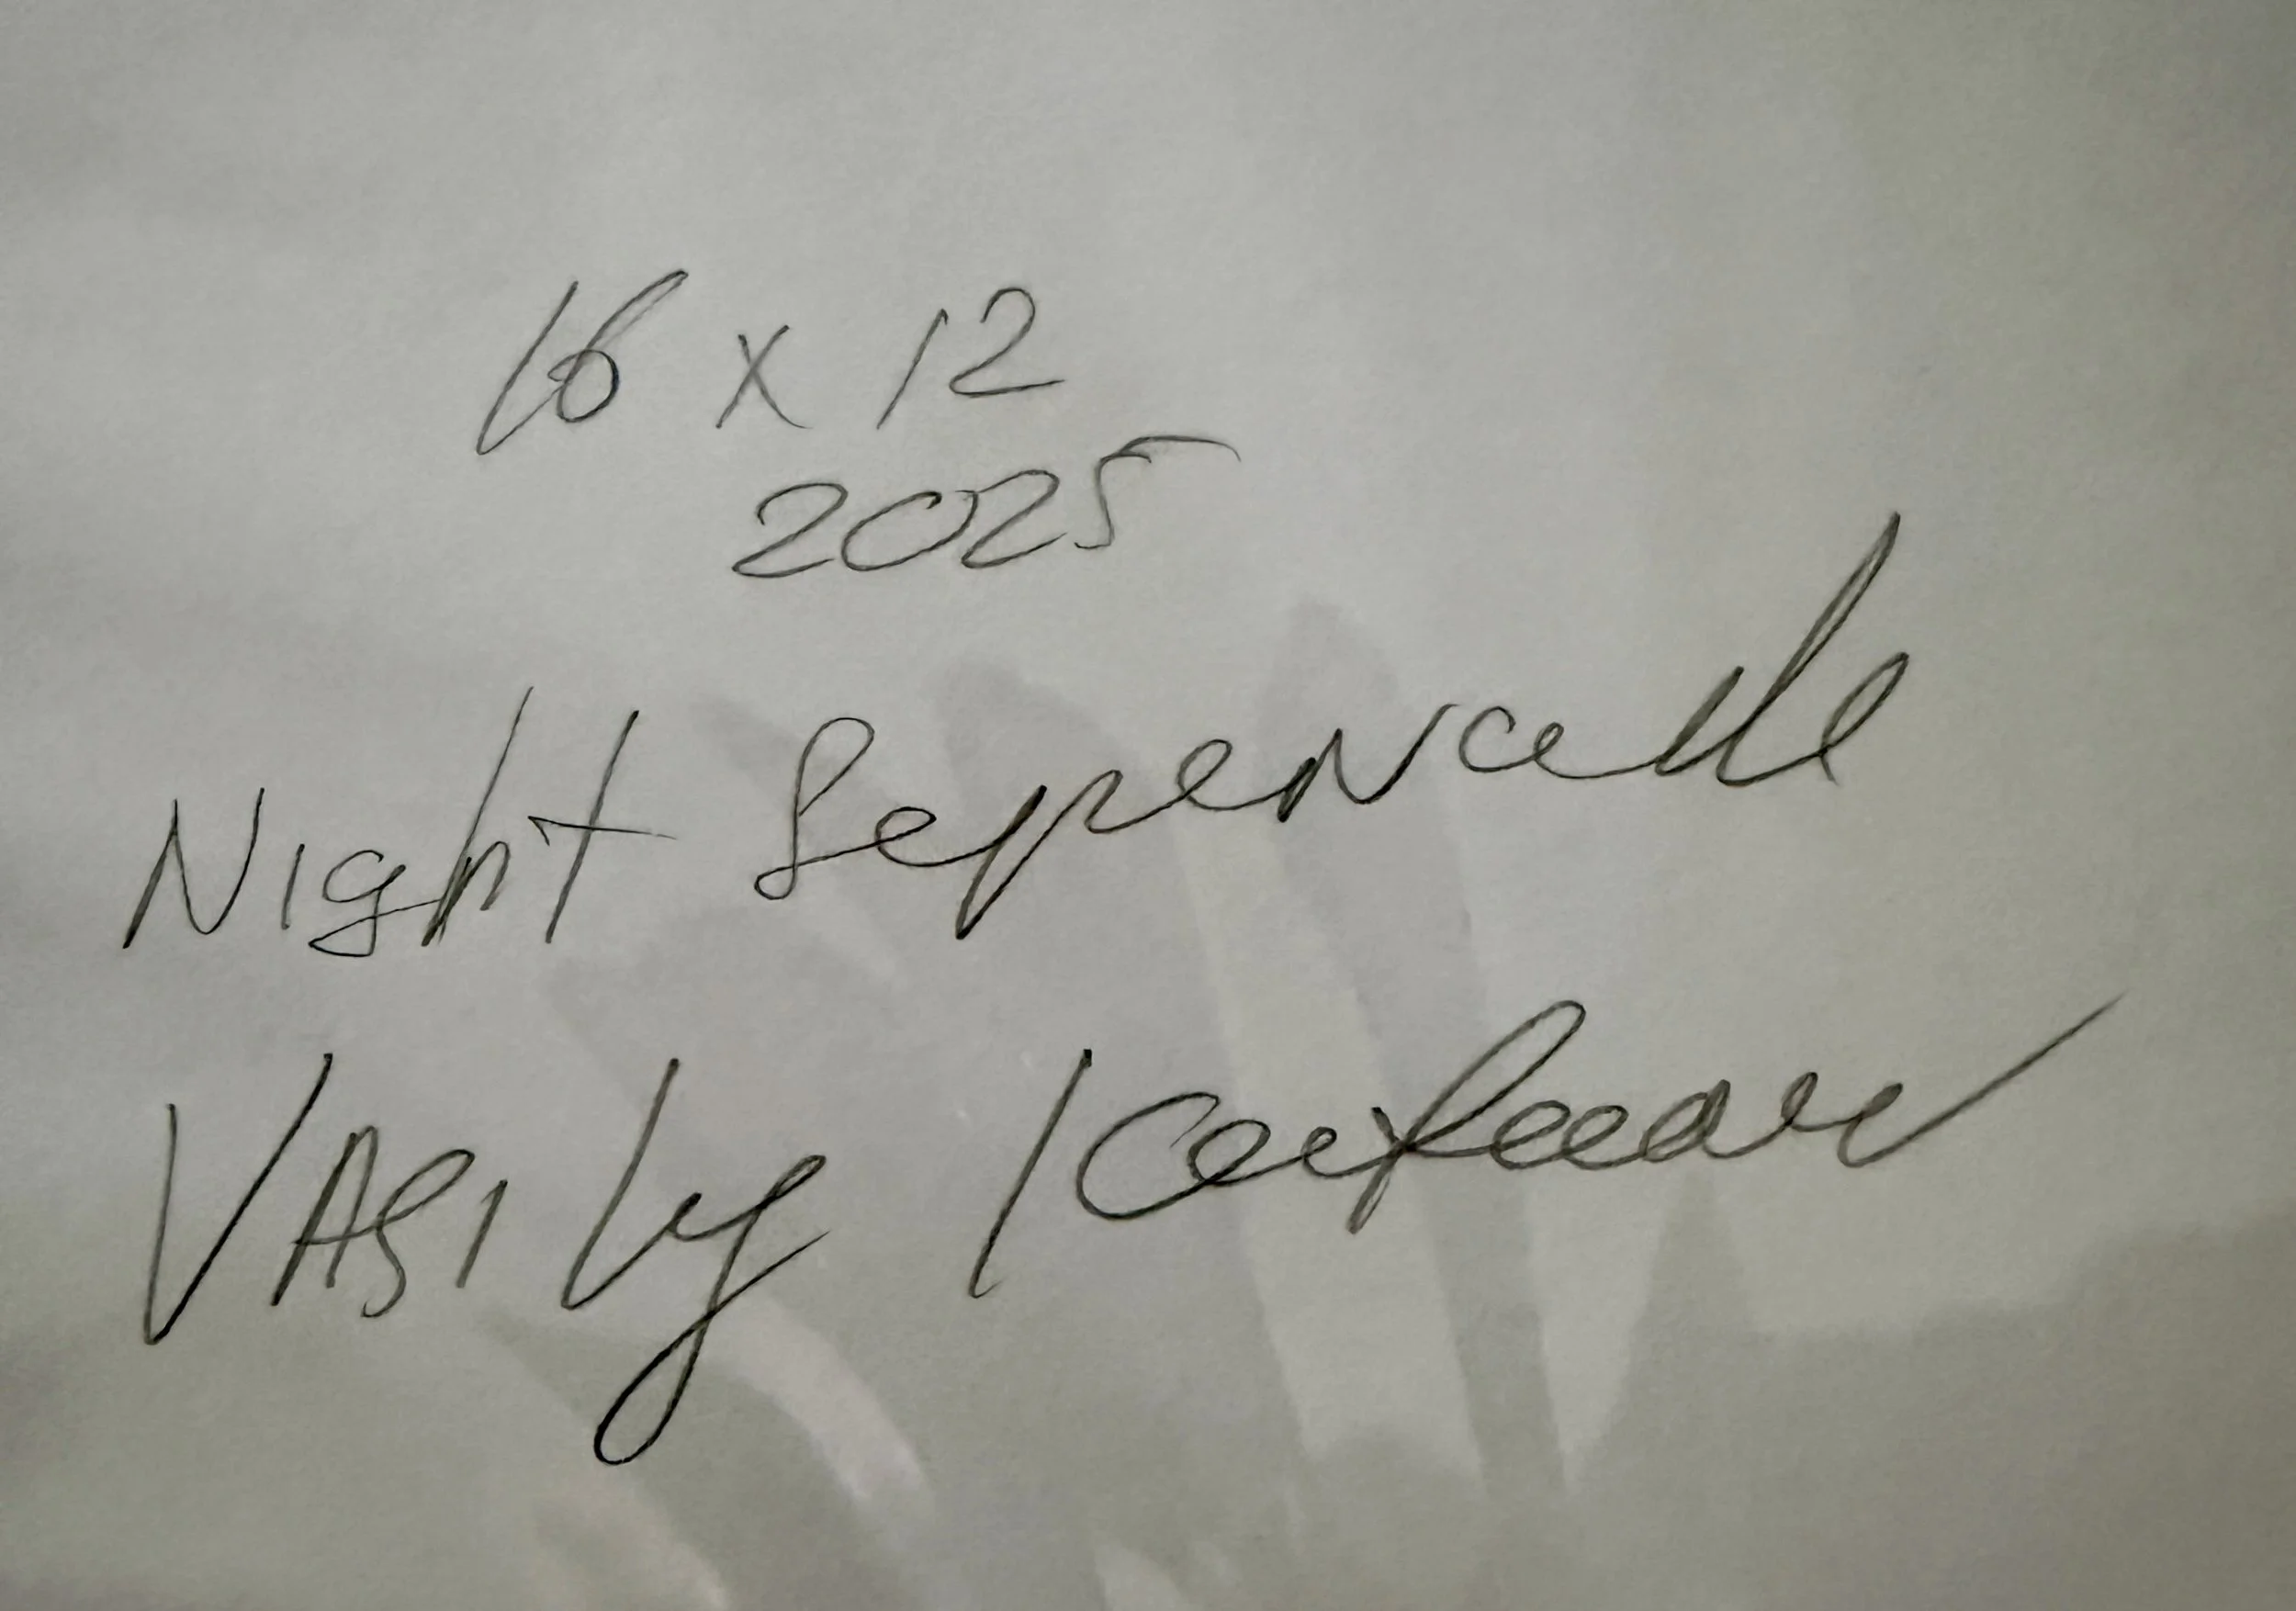 16 x 12
2025
Night Serenade
Vasily